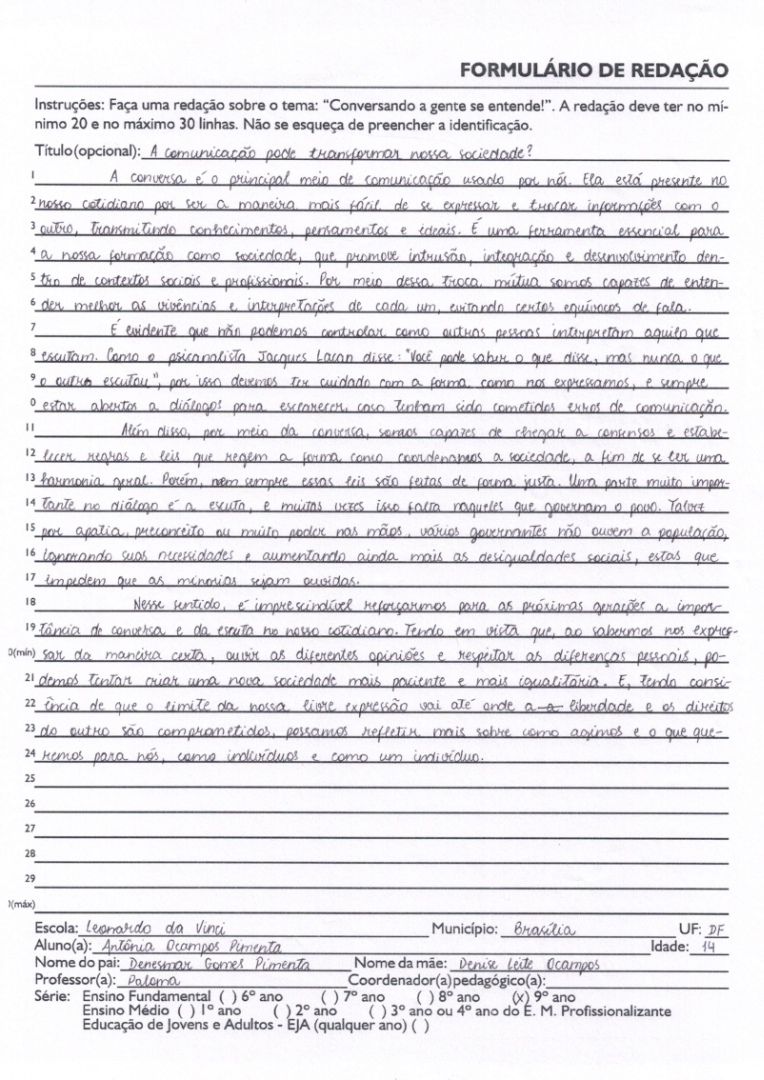 FORMULÁRIO DE REDAÇÃO
Instruções: Faça uma redação sobre o tema: "Conversando a gente se entende!". A redação deve ter no mí-
nimo 20 e no máximo 30 linhas. Não se esqueça de preencher a identificação.
Título(opcional): A comunicação pode transformar nossa sociedade?
1 A conversa é o principal meio de comunicação usado por nós. Ela está presente no
2 nosso cotidiano por ser a maneira mais fácil de se expressar e trocar informações com o
3 outro, transmitindo conhecimentos, pensamentos e ideais. É uma ferramenta essencial para
4 a nossa formação como sociedade, que promove intrusão, integração e desenvolvimento den-
5 tro de contextos sociais e profissionais. Por meio dessa troca mútua somos capazes de enten-
6 der melhor as vivências e interpretações de cada um, evitando certos equívocos de fala.
7 É evidente que não podemos controlar como outras pessoas interpretam aquilo que
8 escutam. Como o psicanalista Jacques Lacan disse: "Você pode saber o que disse, mas nunca o que
9 o outro escutou", por isso devemos ter cuidado com a forma como nos expressamos, e sempre
0 estar abertos a diálogos para esclarecer, caso tenham sido cometidos erros de comunicação.
11 Além disso, por meio da conversa, somos capazes de chegar a consensos e estabe-
12 lecer regras e leis que regem a forma como coordenamos a sociedade, a fim de se ter uma
13 harmonia geral. Porém, nem sempre essas leis são feitas de forma justa. Uma parte muito impor-
14 tante no diálogo é a escuta, e muitas vezes isso falta naqueles que governam o povo. Talvez
15 por apatia, preconceito ou muito poder nas mãos, vários governantes não ouvem a população,
16 ignorando suas necessidades e aumentando ainda mais as desigualdades sociais, estas que
17 impedem que as minorias sejam ouvidas.
18 Nesse sentido, é imprescindível reforçarmos para as próximas gerações a impor-
19 tância de conversa e da escuta no nosso cotidiano. Tendo em vista que, ao sabermos nos expres-
0(mín) sar da maneira certa, ouvir as diferentes opiniões e respeitar as diferenças pessoais, po-
21 demos tentar criar uma nova sociedade mais paciente e mais igualitária. E, tendo consi-
22 ência de que o limite da nossa livre expressão vai até onde a liberdade e os direitos
23 do outro são comprometidos, possamos refletir mais sobre como agimos e o que que-
24 remos para nós, como indivíduos e como um indivíduo.
25
26
27
28
29
0(máx)
Escola: Leonardo da Vinci Município: Brasília UF: DF
Aluno(a): Antônia Ocampos Pimenta Idade: 14
Nome do pai: Denesmar Gomes Pimenta Nome da mãe: Denise Leite Ocampos
Professor(a): Paloma Coordenador(a) pedagógico(a):
Série: Ensino Fundamental ( ) 6º ano ( ) 7º ano ( ) 8º ano (x) 9º ano
Ensino Médio ( ) 1º ano ( ) 2º ano ( ) 3º ano ou 4º ano do E. M. Profissionalizante
Educação de Jovens e Adultos - EJA (qualquer ano) ( )